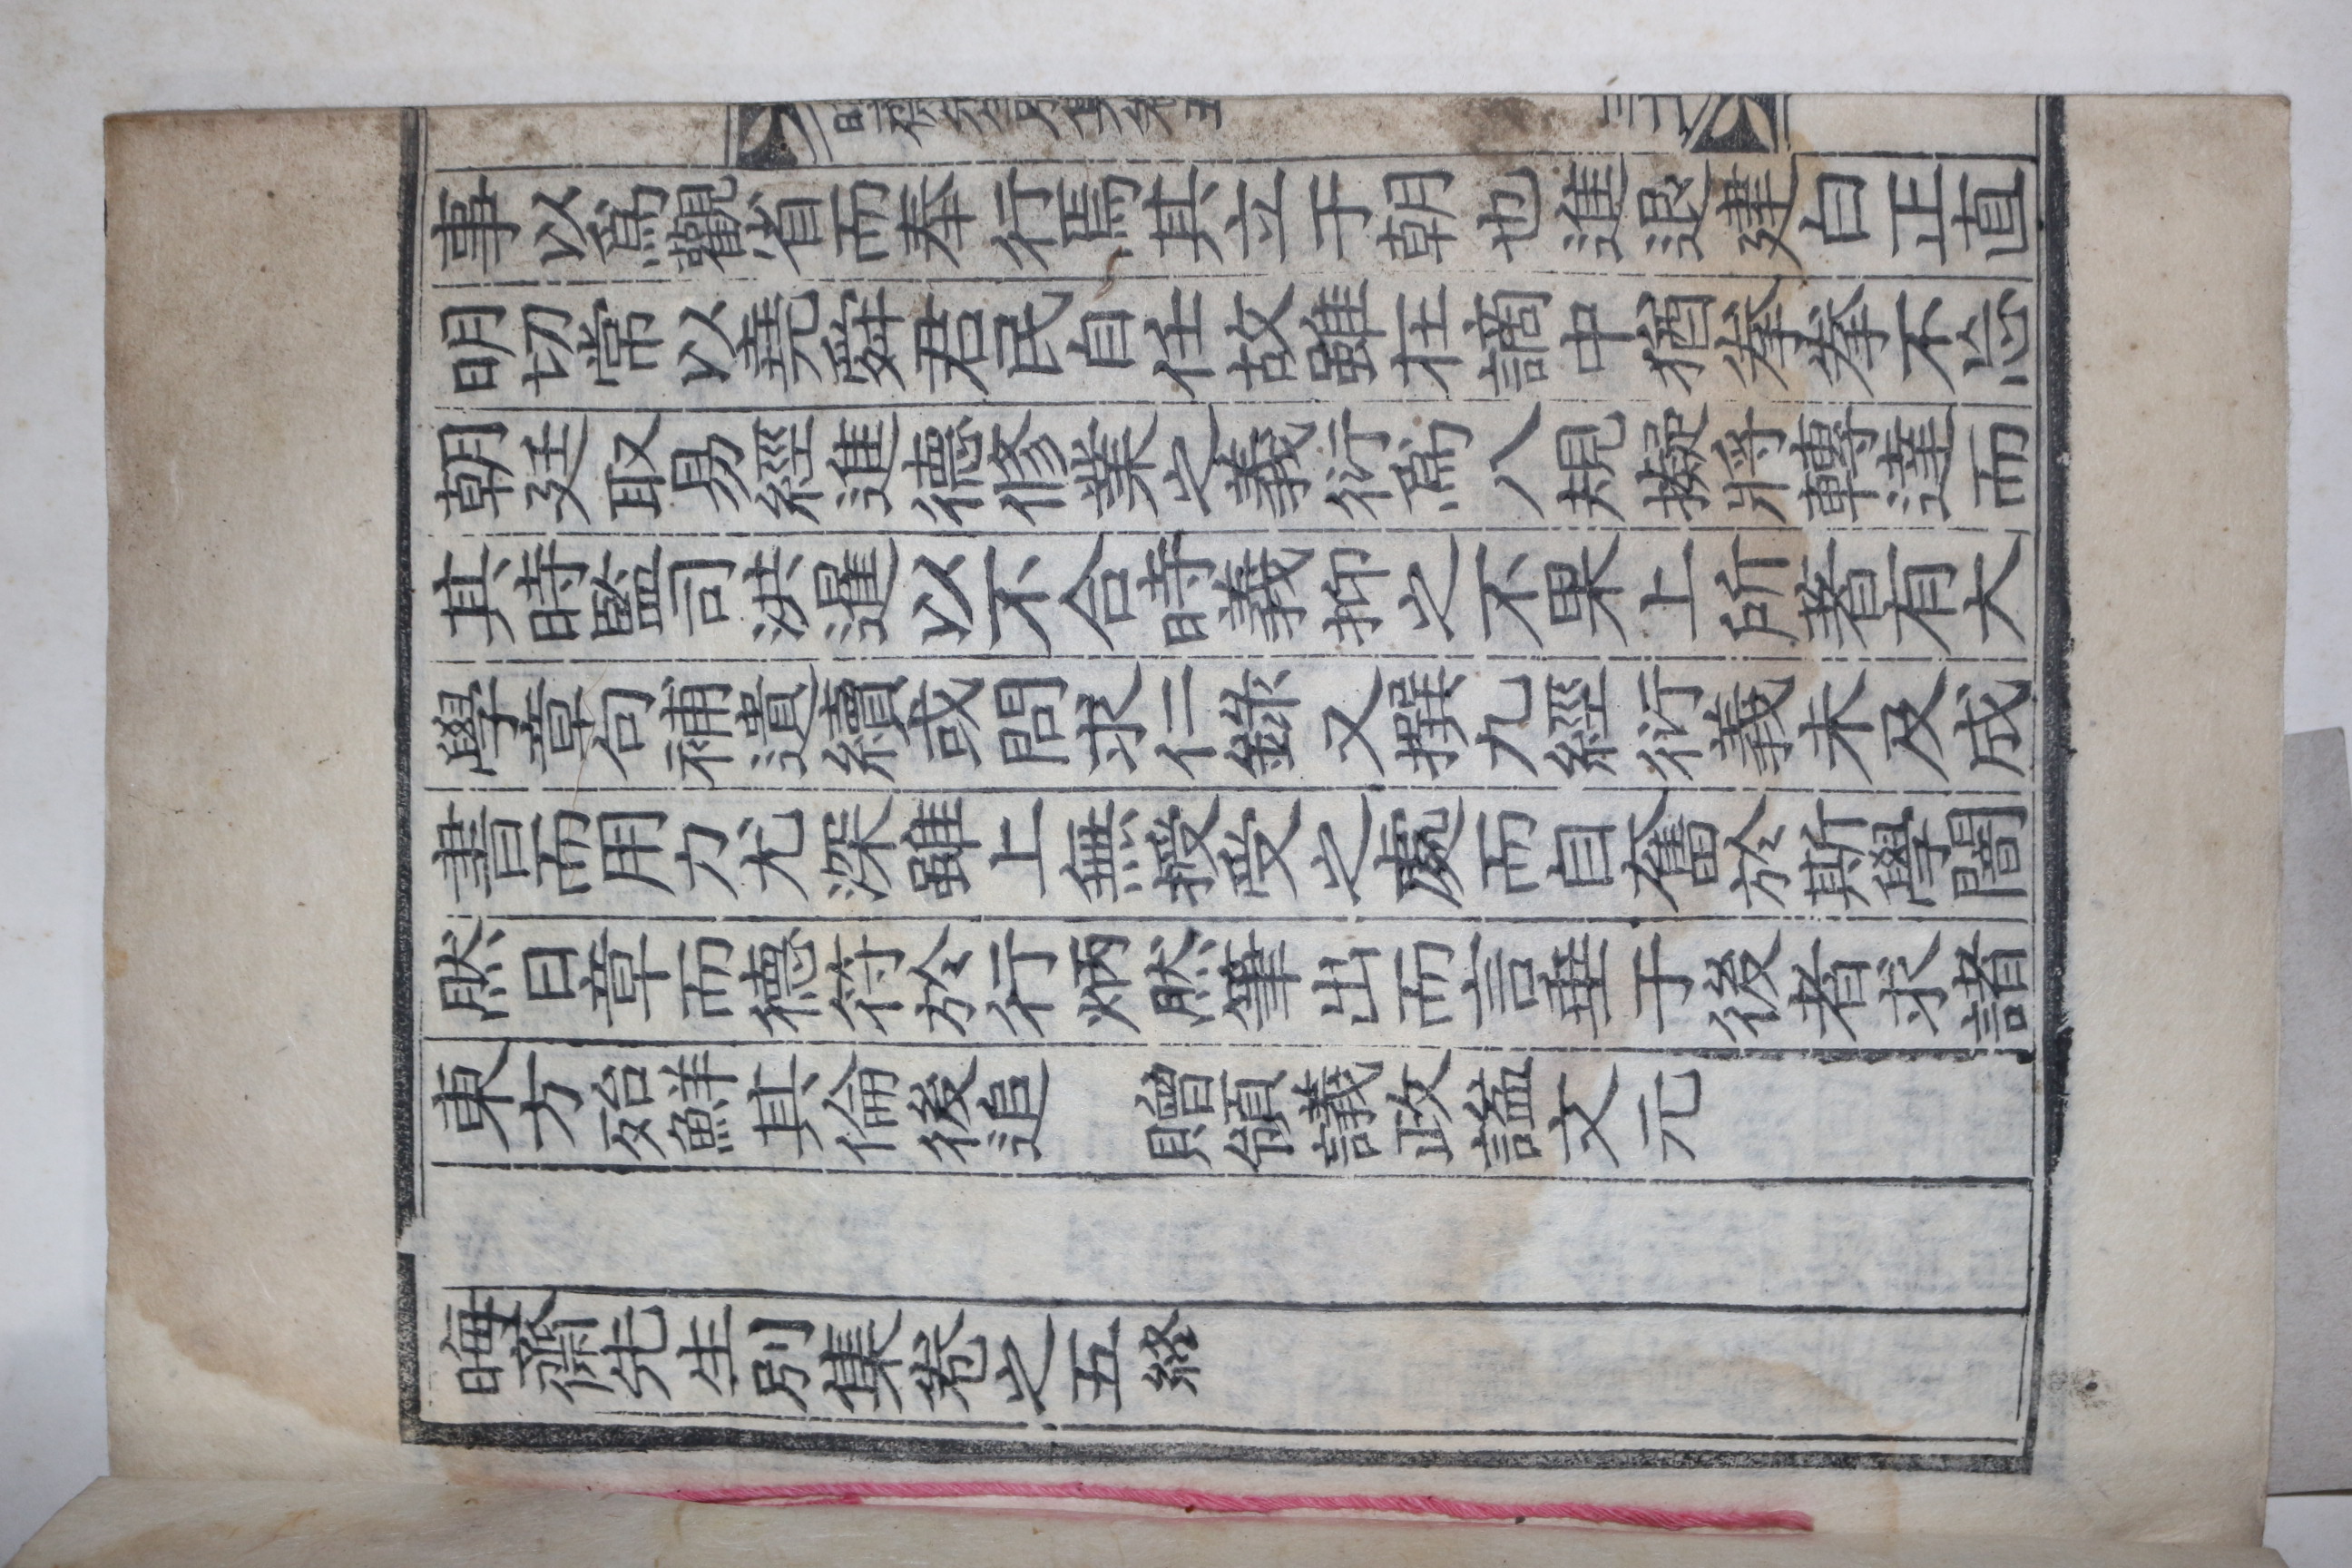 事以爲觀省而奉行焉其立于朝也進退建白正直
明切常以堯舜君民自任故雖在謫中猶拳拳不忘
朝廷取易經進德修業之義衍爲八規擬將轉達而
其時監司洪暹以不合時義抑之不果上所著有大
學章句補遺續或問求仁錄又撰九經衍義未及成
書而用力尤深雖上無授受之處而自奮於斯學闇
然日章而德符於行炳然筆出而言垂于後者求諸
東方殆鮮其倫後追 贈領議政謚文元
晦齋先生別集卷之五終